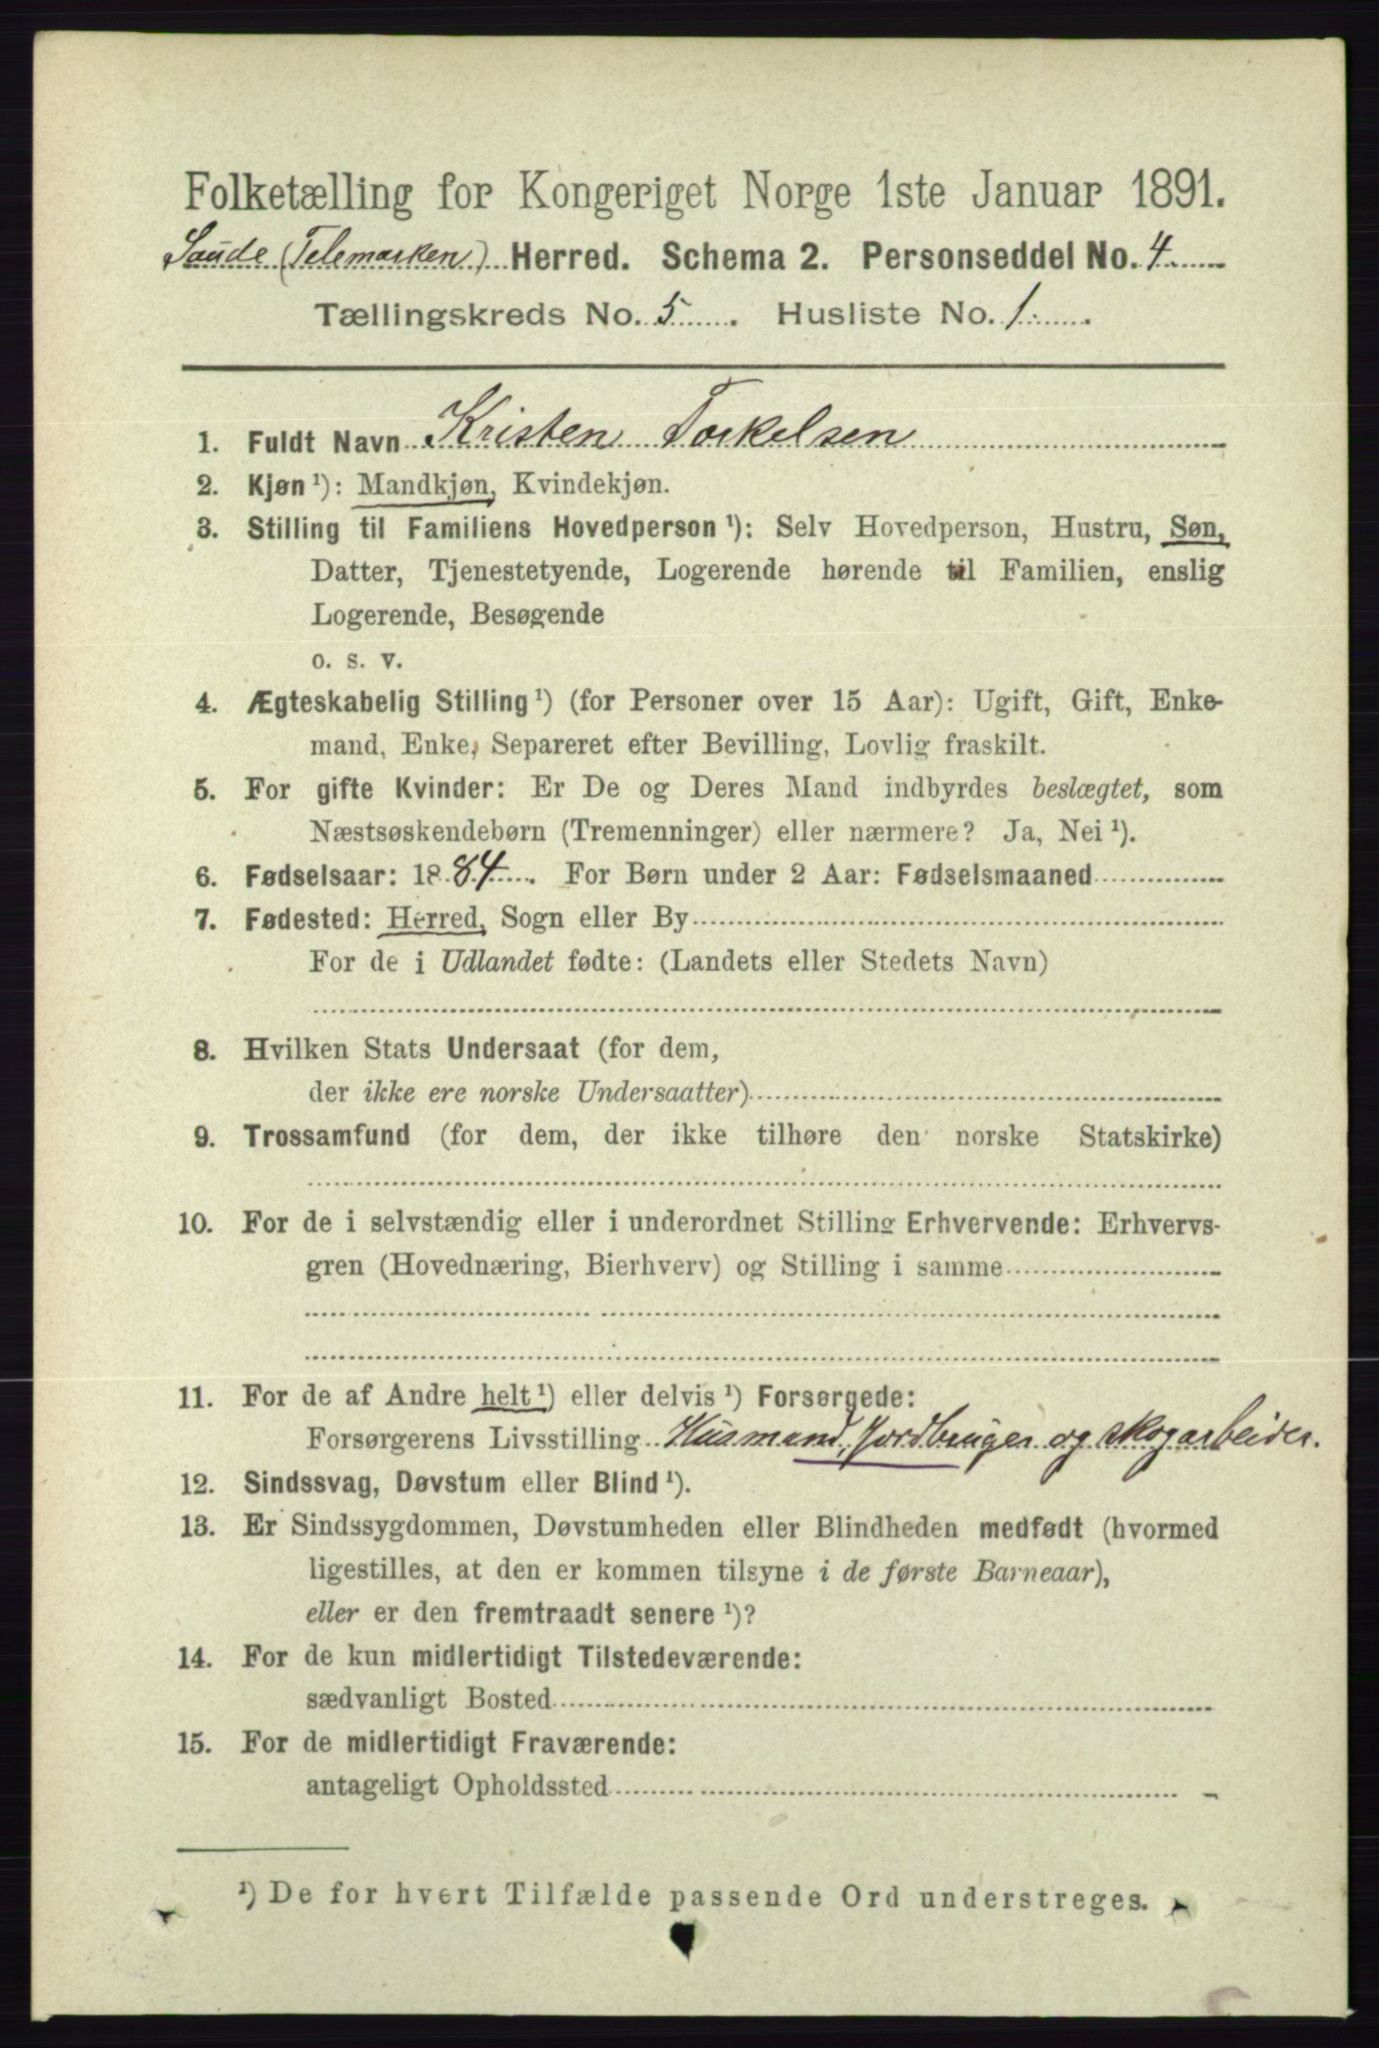 Folketælling for Kongeriget Norge 1ste Januar 1891.
Saude (Telemarken) Herred. Schema 2. Personseddel No. 4
Tællingskreds No. 5. Husliste No. 1.
1. Fuldt Navn Kristen Torkelsen
2. Kjøn ¹): Mandkjøn, Kvindekjøn.
3. Stilling til Familiens Hovedperson ¹): Selv Hovedperson, Hustru, Søn,
Datter, Tjenestetyende, Logerende hørende til Familien, enslig
Logerende, Besøgende
o. s. v.
4. Ægteskabelig Stilling ¹) (for Personer over 15 Aar): Ugift, Gift, Enke-
mand, Enke, Separeret efter Bevilling, Lovlig fraskilt.
5. For gifte Kvinder: Er De og Deres Mand indbyrdes beslægtet, som
Næstsøskendebørn (Tremenninger) eller nærmere? Ja, Nei ¹).
6. Fødselsaar: 1884. For Børn under 2 Aar: Fødselsmaaned
7. Fødested: Herred, Sogn eller By
For de i Udlandet fødte: (Landets eller Stedets Navn)
8. Hvilken Stats Undersaat (for dem,
der ikke ere norske Undersaatter)
9. Trossamfund (for dem, der ikke tilhøre den norske Statskirke)
10. For de i selvstændig eller i underordnet Stilling Erhvervende: Erhvervs-
gren (Hovednæring, Bierhverv) og Stilling i samme
11. For de af Andre helt ¹) eller delvis ¹) Forsørgede:
Forsørgerens Livsstilling Husmand, Jordbruger og skogarbeider.
12. Sindssvag, Døvstum eller Blind ¹).
13. Er Sindssygdommen, Døvstumheden eller Blindheden medfødt (hvormed
ligestilles, at den er kommen tilsyne i de første Barneaar),
eller er den fremtraadt senere ¹)?
14. For de kun midlertidigt Tilstedeværende:
sædvanligt Bosted
15. For de midlertidigt Fraværende:
antageligt Opholdssted
¹) De for hvert Tilfælde passende Ord understreges.